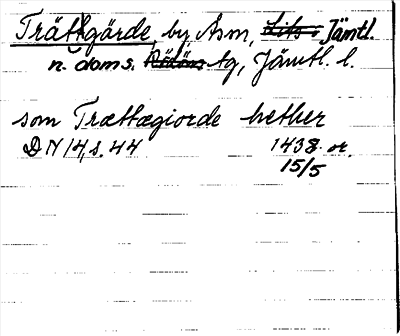 Trättgärde, by, Asm, Lits Jämtl.
n. doms. Rödöns tg, Jämtl. l.
som Trættægiorde hether
DN 14, s. 44 1438 or.
15/5